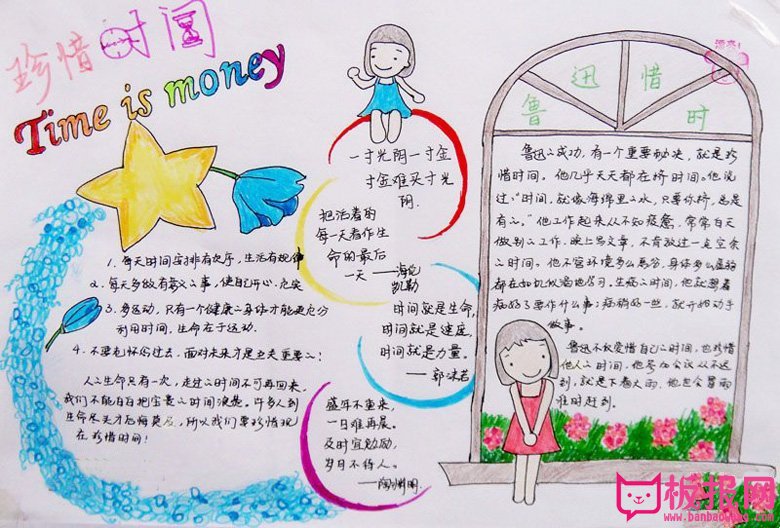 珍惜时间
Time is money
1. 每天时间安排有次序，生活有规律
2. 每天多做有益之事，使自己开心、充实
3. 多运动，只有一个健康之身体才能更充分
利用时间，生命在于运动。
4. 不要老怀旧过去，面对未来才是至关重要之！
人之生命只有一次，走过之时间不可再回来，
我们不能白白把宝贵之时间浪费。许多人到
生命尽头才后悔莫及，所以我们要珍惜现
在珍惜时间！
一寸光阴一寸金
寸金难买寸光
阴.
把活着的
每一天看作生
命的最后
一天
——海伦
凯勒
时间就是生命，
时间就是速度，
时间就是力量。
——郭沫若
盛年不重来，
一日难再晨。
及时宜勉励，
岁月不待人。
——陶渊明.
漂亮！
鲁迅惜时
鲁迅之成功，有一个重要秘决，就是珍
惜时间。他几乎天天都在挤时间。他说
过：“时间，就像海绵里之水，只要你挤，总是
有之。”他工作起来从不知疲惫，常常白天
做别之工作，晚上写文章，不肯放过一点空余
之时间。他不管环境多么恶劣、身体多么虚弱
都在如饥似渴地学习。生病之时间，他就想着
病好了要作什么事；病稍好一些，就开始动手
做事。
鲁迅不仅爱惜自己之时间，也珍惜
他人之时间，他参加会议从不迟
到，就是下着大雨，他也会冒雨
准时赶到。
板报网
www.banbaowang.com